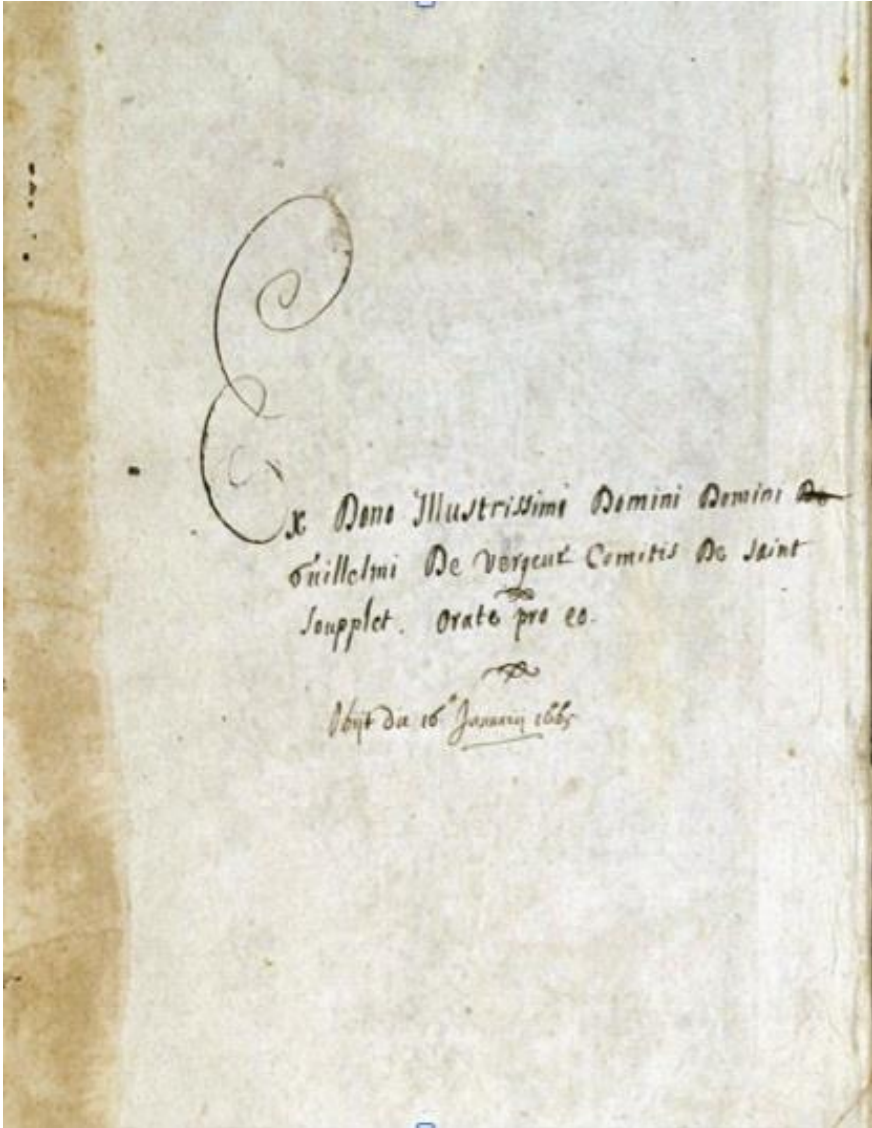 Ex Dono Illustrissimi Domini Domini De
Guillelmi De Vergeur Comitis De Saint
Soupplet. Orate pro eo.
Obijt die 16ᵃ Januarij 1665